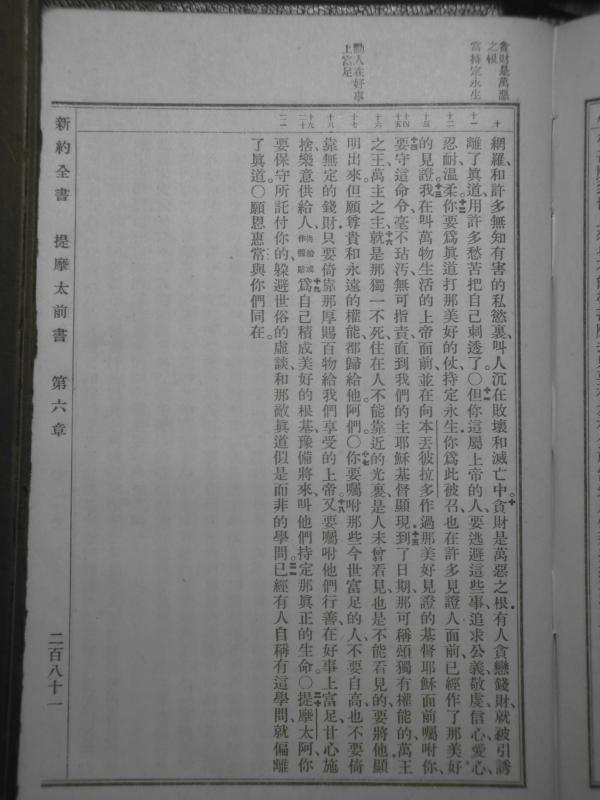 貪財是萬惡
之根
當持定永生
勸人在好事
上富足
十
網羅和許多無知有害的私慾裏叫人沉在敗壞和滅亡中十貪財是萬惡之根有人貪戀錢財就被引誘
十一
離了眞道用許多愁苦把自己刺透了〇十一但你這屬上帝的人要逃避這些事追求公義敬虔信心愛心
十二
忍耐溫柔十二你要爲眞道打那美好的仗持定永生你爲此被召也在許多見證人面前已經作了那美好
十三
的見證十三我在叫萬物生活的上帝面前並在向本丟彼拉多作過那美好見證的基督耶穌面前囑咐你
十四
十五
十四要守這命令毫不玷汚無可指責直到我們的主耶穌基督顯現十五到了日期那可稱頌獨有權能的萬王
十六
之王萬主之主十六就是那獨一不死住在人不能靠近的光裏是人未曾看見也是不能看見的要將他顯
十七
明出來但願尊貴和永遠的權能都歸給他阿們〇十七你要囑咐那些今世富足的人不要自高也不要倚
十八
靠無定的錢財只要倚靠那厚賜百物給我們享受的上帝十八又要囑咐他們行善在好事上富足甘心施
十九
二十
捨樂意供給人十九爲自己積成美好的根基豫備將來叫他們持定那眞正的生命〇二十提摩太阿你
二一
要保守所託付你的躱避世俗的虛談和那敵眞道似是而非的學問二一已經有人自稱有這學問就偏離
了眞道〇願恩惠常與你們同在
新約全書 提摩太前書 第六章 二百八十一